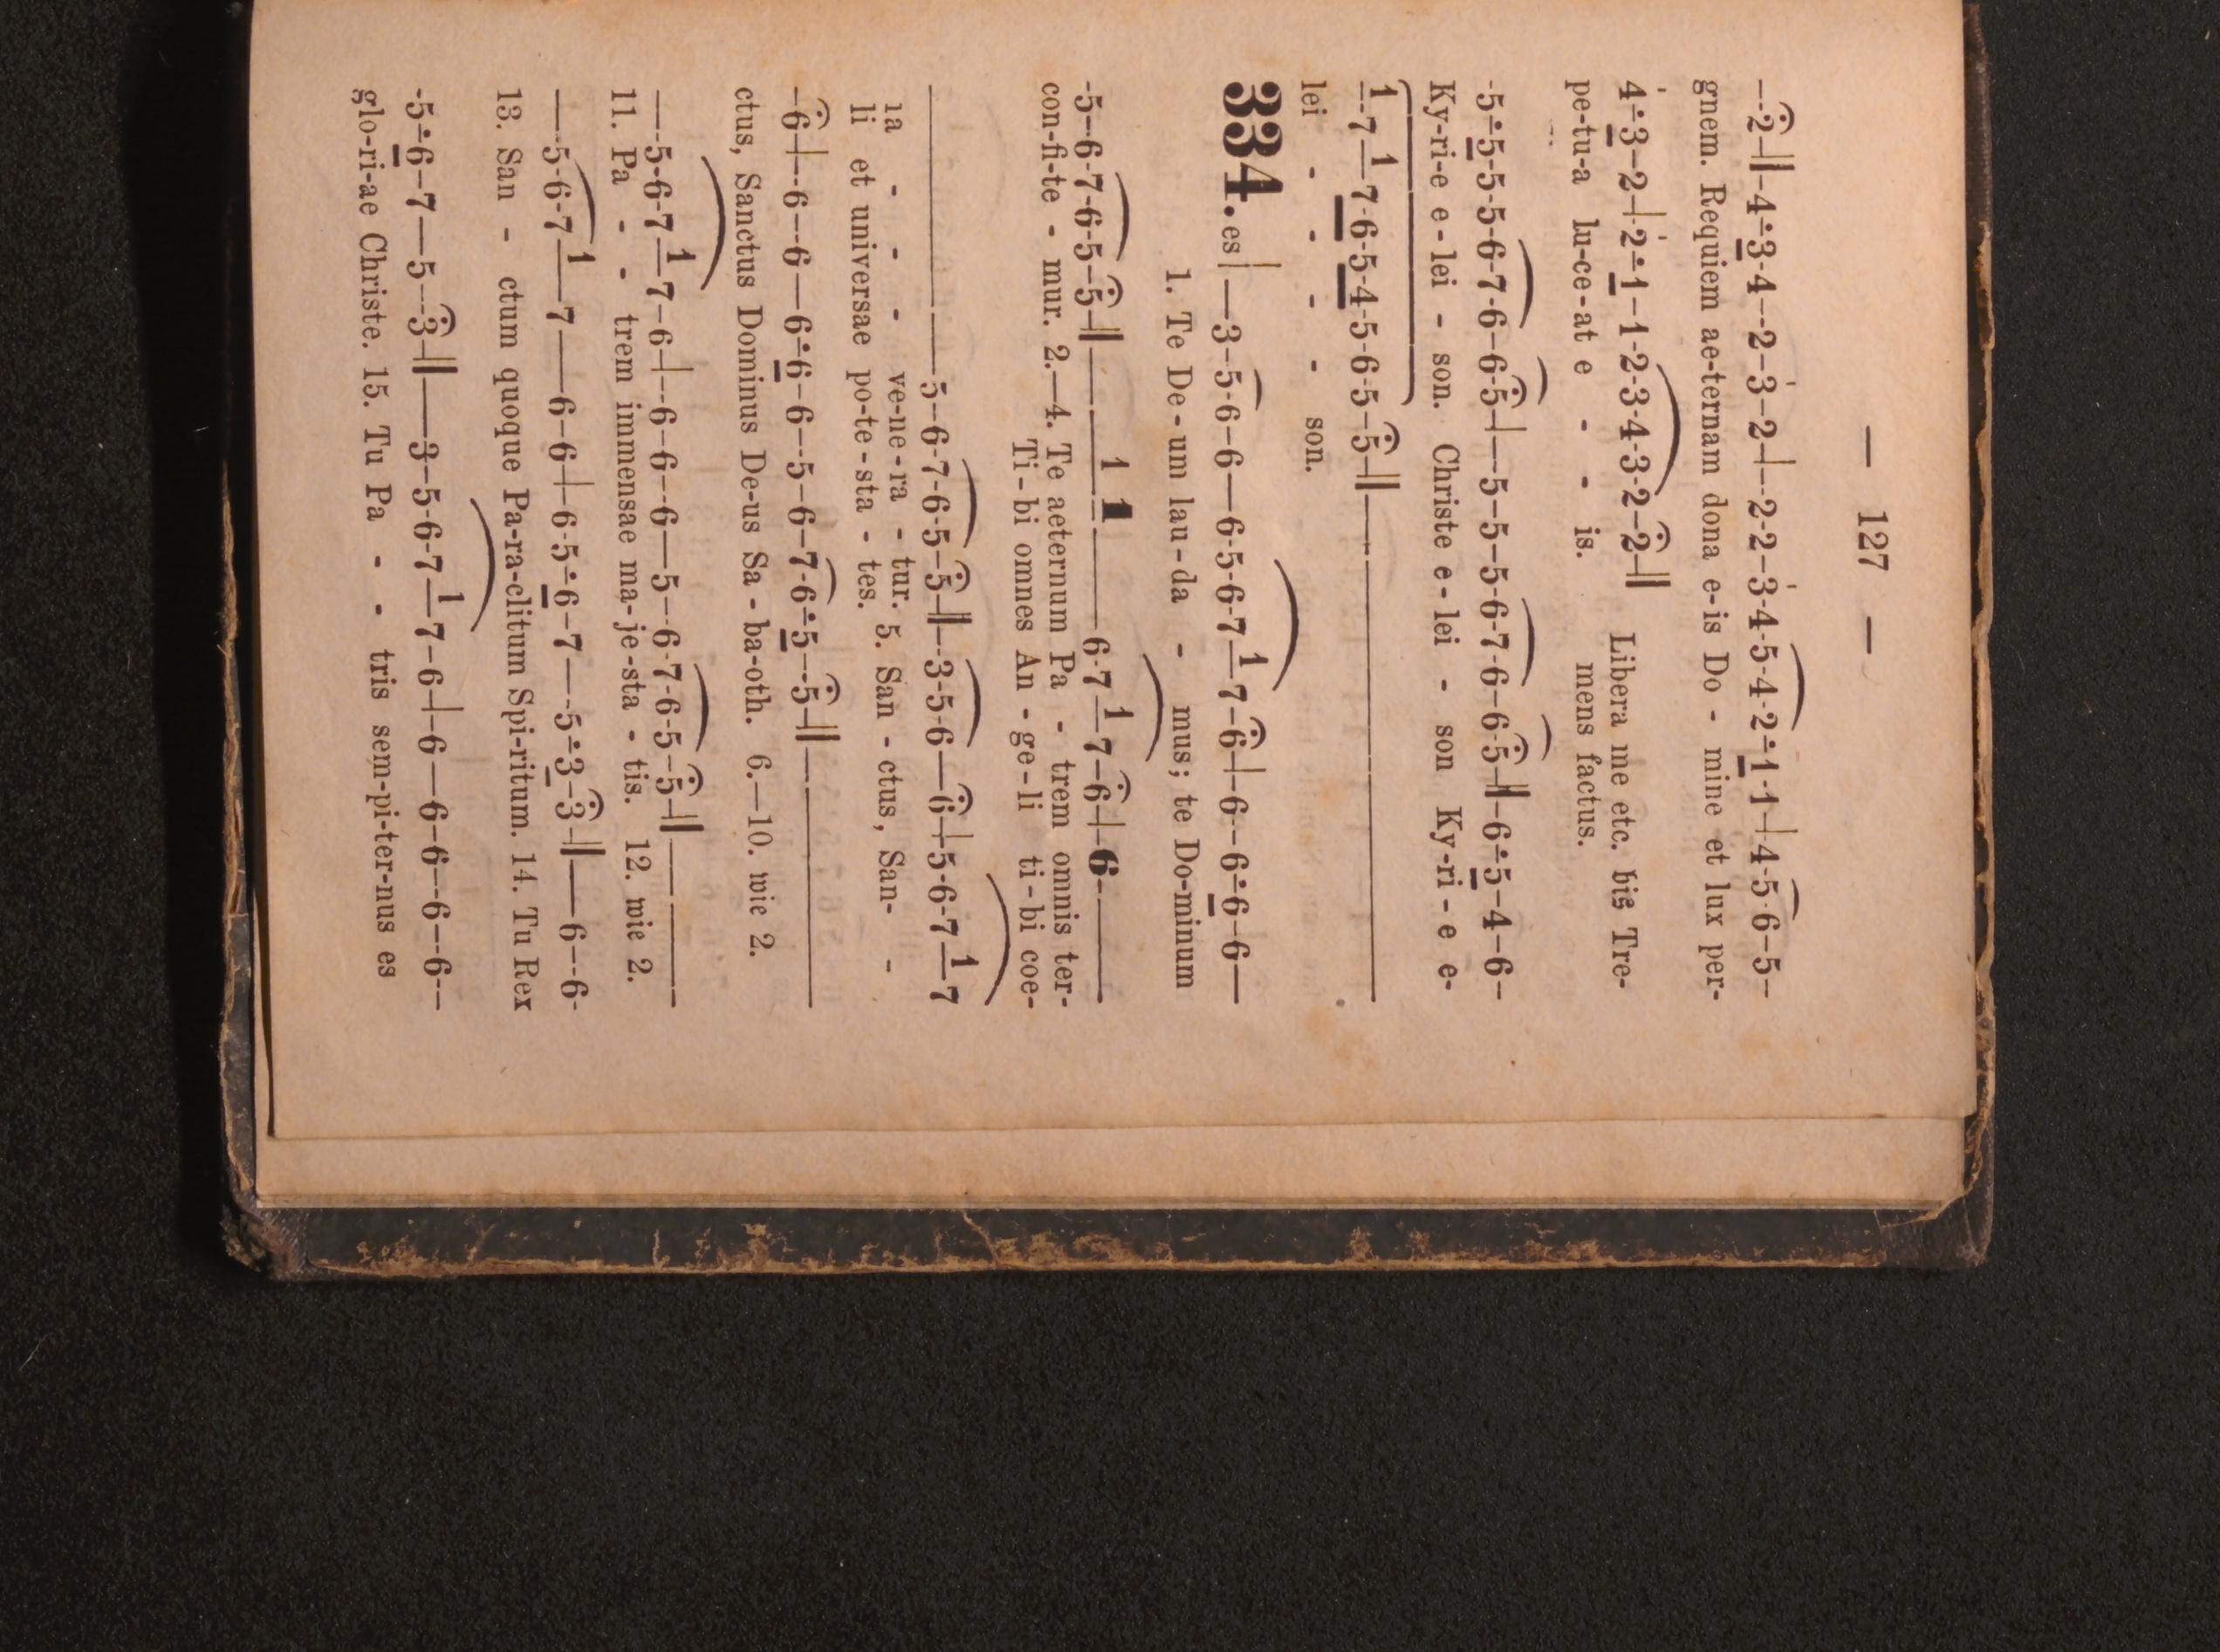 — 127 —
—-2-‖-4÷3-4--2-3-2-|--2-2-3-4-5-4-2÷1-1-|-4-5-6-5--
gnem. Requiem ae-ternam dona e-is Do - mine et lux per-
4÷3-2-|-2÷1-1-2-3-4-3-2-2-‖ Libera me etc. bis Tre-
pe-tu-a lu-ce-at e - - is. mens factus.
-5÷5-5-5-6-7-6-6-5-|--5-5-5-5-6-7-6-6-5-‖-6÷5-4-6--
Ky-ri-e e-lei - son. Christe e-lei - son Ky-ri-e e-
1--7-1-7-6-5-4-5-6-5-5-‖
lei - - - - son.
334. es|—3-5-6-6—6-5-6-7-1-7-6-|-6--6÷6-6—
1. Te De-um lau-da - mus; te Do-minum
-5-6-7-6-5-5-‖———1 1———6-7-1-7-6-|-6-——
con-fi-te - mur. 2.—4. Te aeternum Pa - trem omnis ter-
Ti-bi omnes An-ge-li ti-bi coe-
————5-6-7-6-5-5-‖--3-5-6—6-|-5-6-7-1-7
ra - - - ve-ne-ra - tur. 5. San - ctus, San- -
li et universae po-te-sta - tes.
-6-|--6--6—6÷6-6--5-6-7-6÷5--5-‖————
ctus, Sanctus Dominus De-us Sa-ba-oth. 6.—10. wie 2.
—-5-6-7-1-7-6-|--6-6--6—5--6-7-6-5-5-‖————
11. Pa - - trem immensae ma-je-sta - tis. 12. wie 2.
—-5-6-7-1—7——6-6-|-6-5÷6-7—-5÷3-3-‖——6--6-
13. San - ctum quoque Pa-ra-clitum Spi-ritum. 14. Tu Rex
-5÷6-7—5--3-‖——3-5-6-7-1-7-6-|-6—6-6--6--6--
glo-ri-ae Christe. 15. Tu Pa - - tris sem-pi-ter-nus es